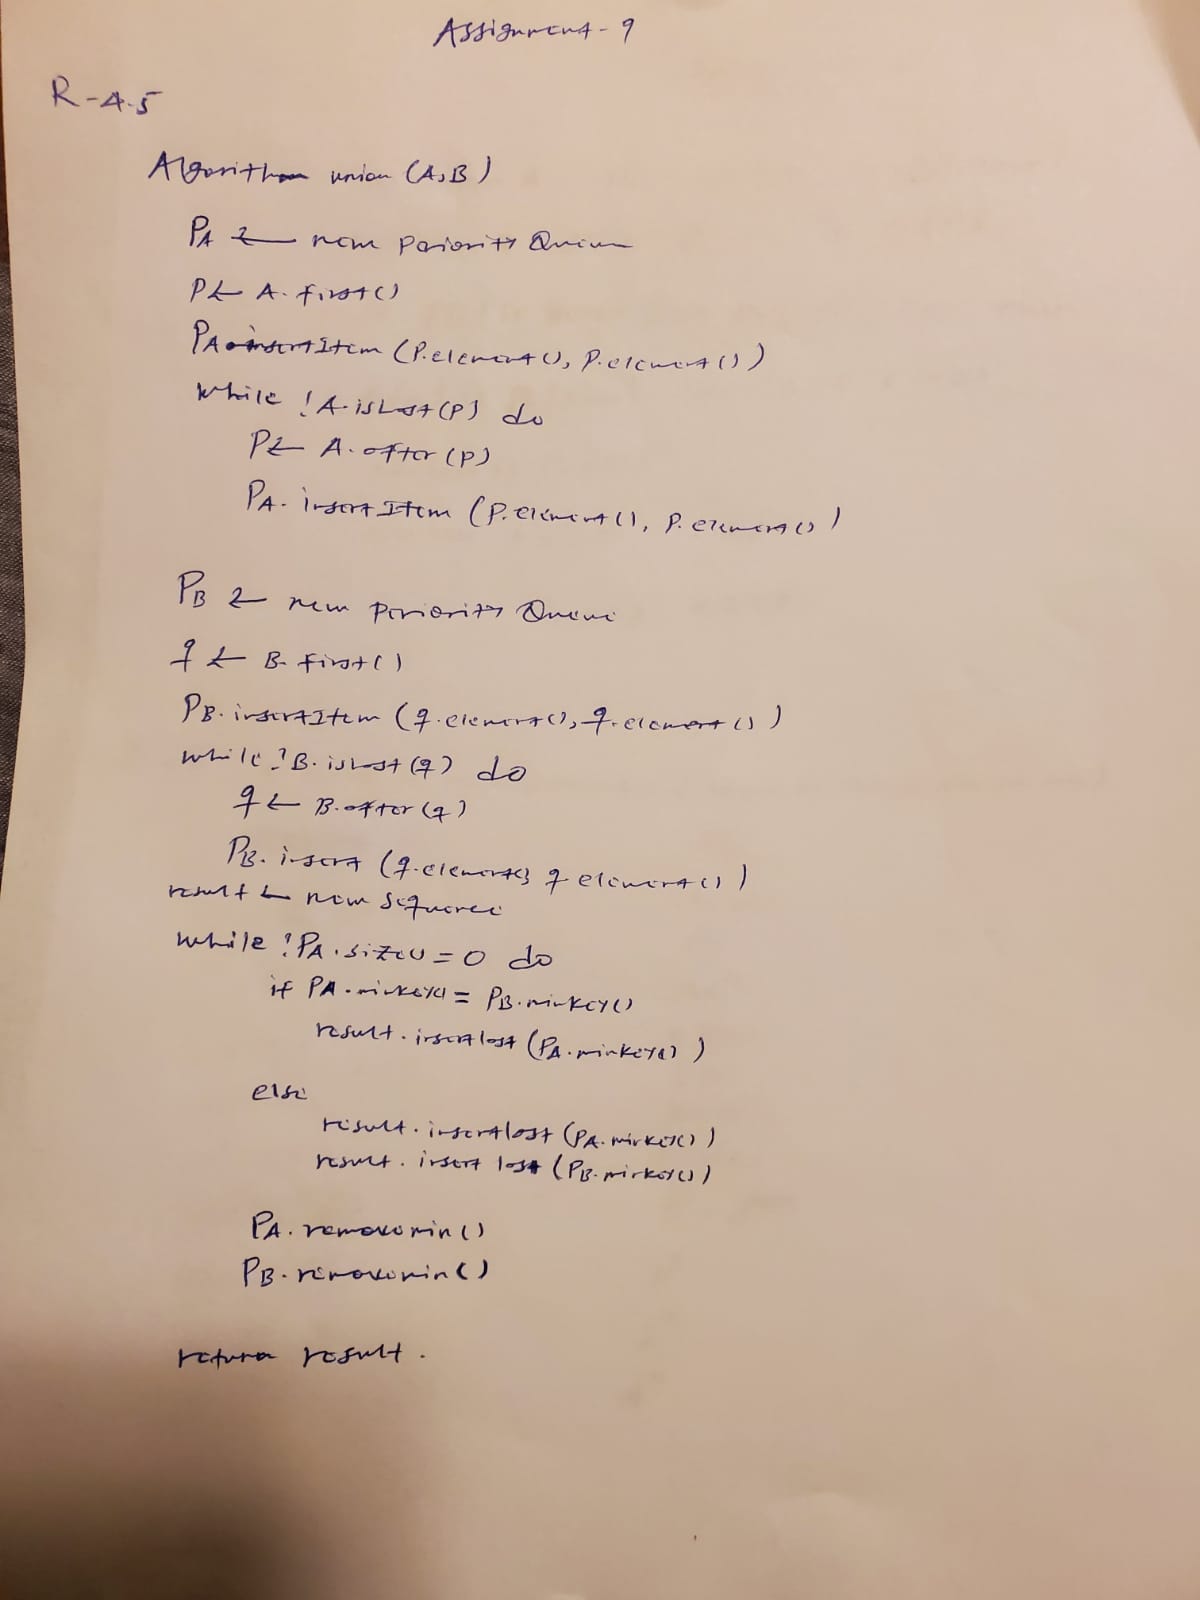 Assignment-9
R-4.5
Algorithm union (A,B)
PA ← new priority Queue
P ← A.first()
PA.insertItem (P.element(), P.element())
while !A.isLast(P) do
P ← A.after(P)
PA.insertItem (P.element(), P.element())
PB ← new priority Queue
q ← B.first()
PB.insertItem (q.element(), q.element())
while !B.isLast(q) do
q ← B.after(q)
PB.insert (q.element(), q.element())
result ← new sequence
while !PA.size() = 0 do
if PA.minkey() = PB.minkey()
result.insertlast (PA.minkey())
else
result.insertlast (PA.minkey())
result.insert last (PB.minkey())
PA.removemin()
PB.removemin()
return result.